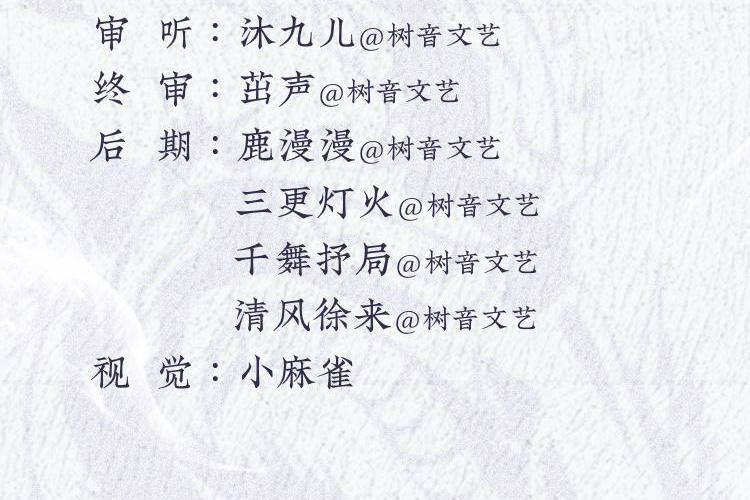 审 听：沐九儿@树音文艺
终 审：茁声@树音文艺
后 期：鹿漫漫@树音文艺
三更灯火@树音文艺
千舞抒局@树音文艺
清风徐来@树音文艺
视 觉：小麻雀